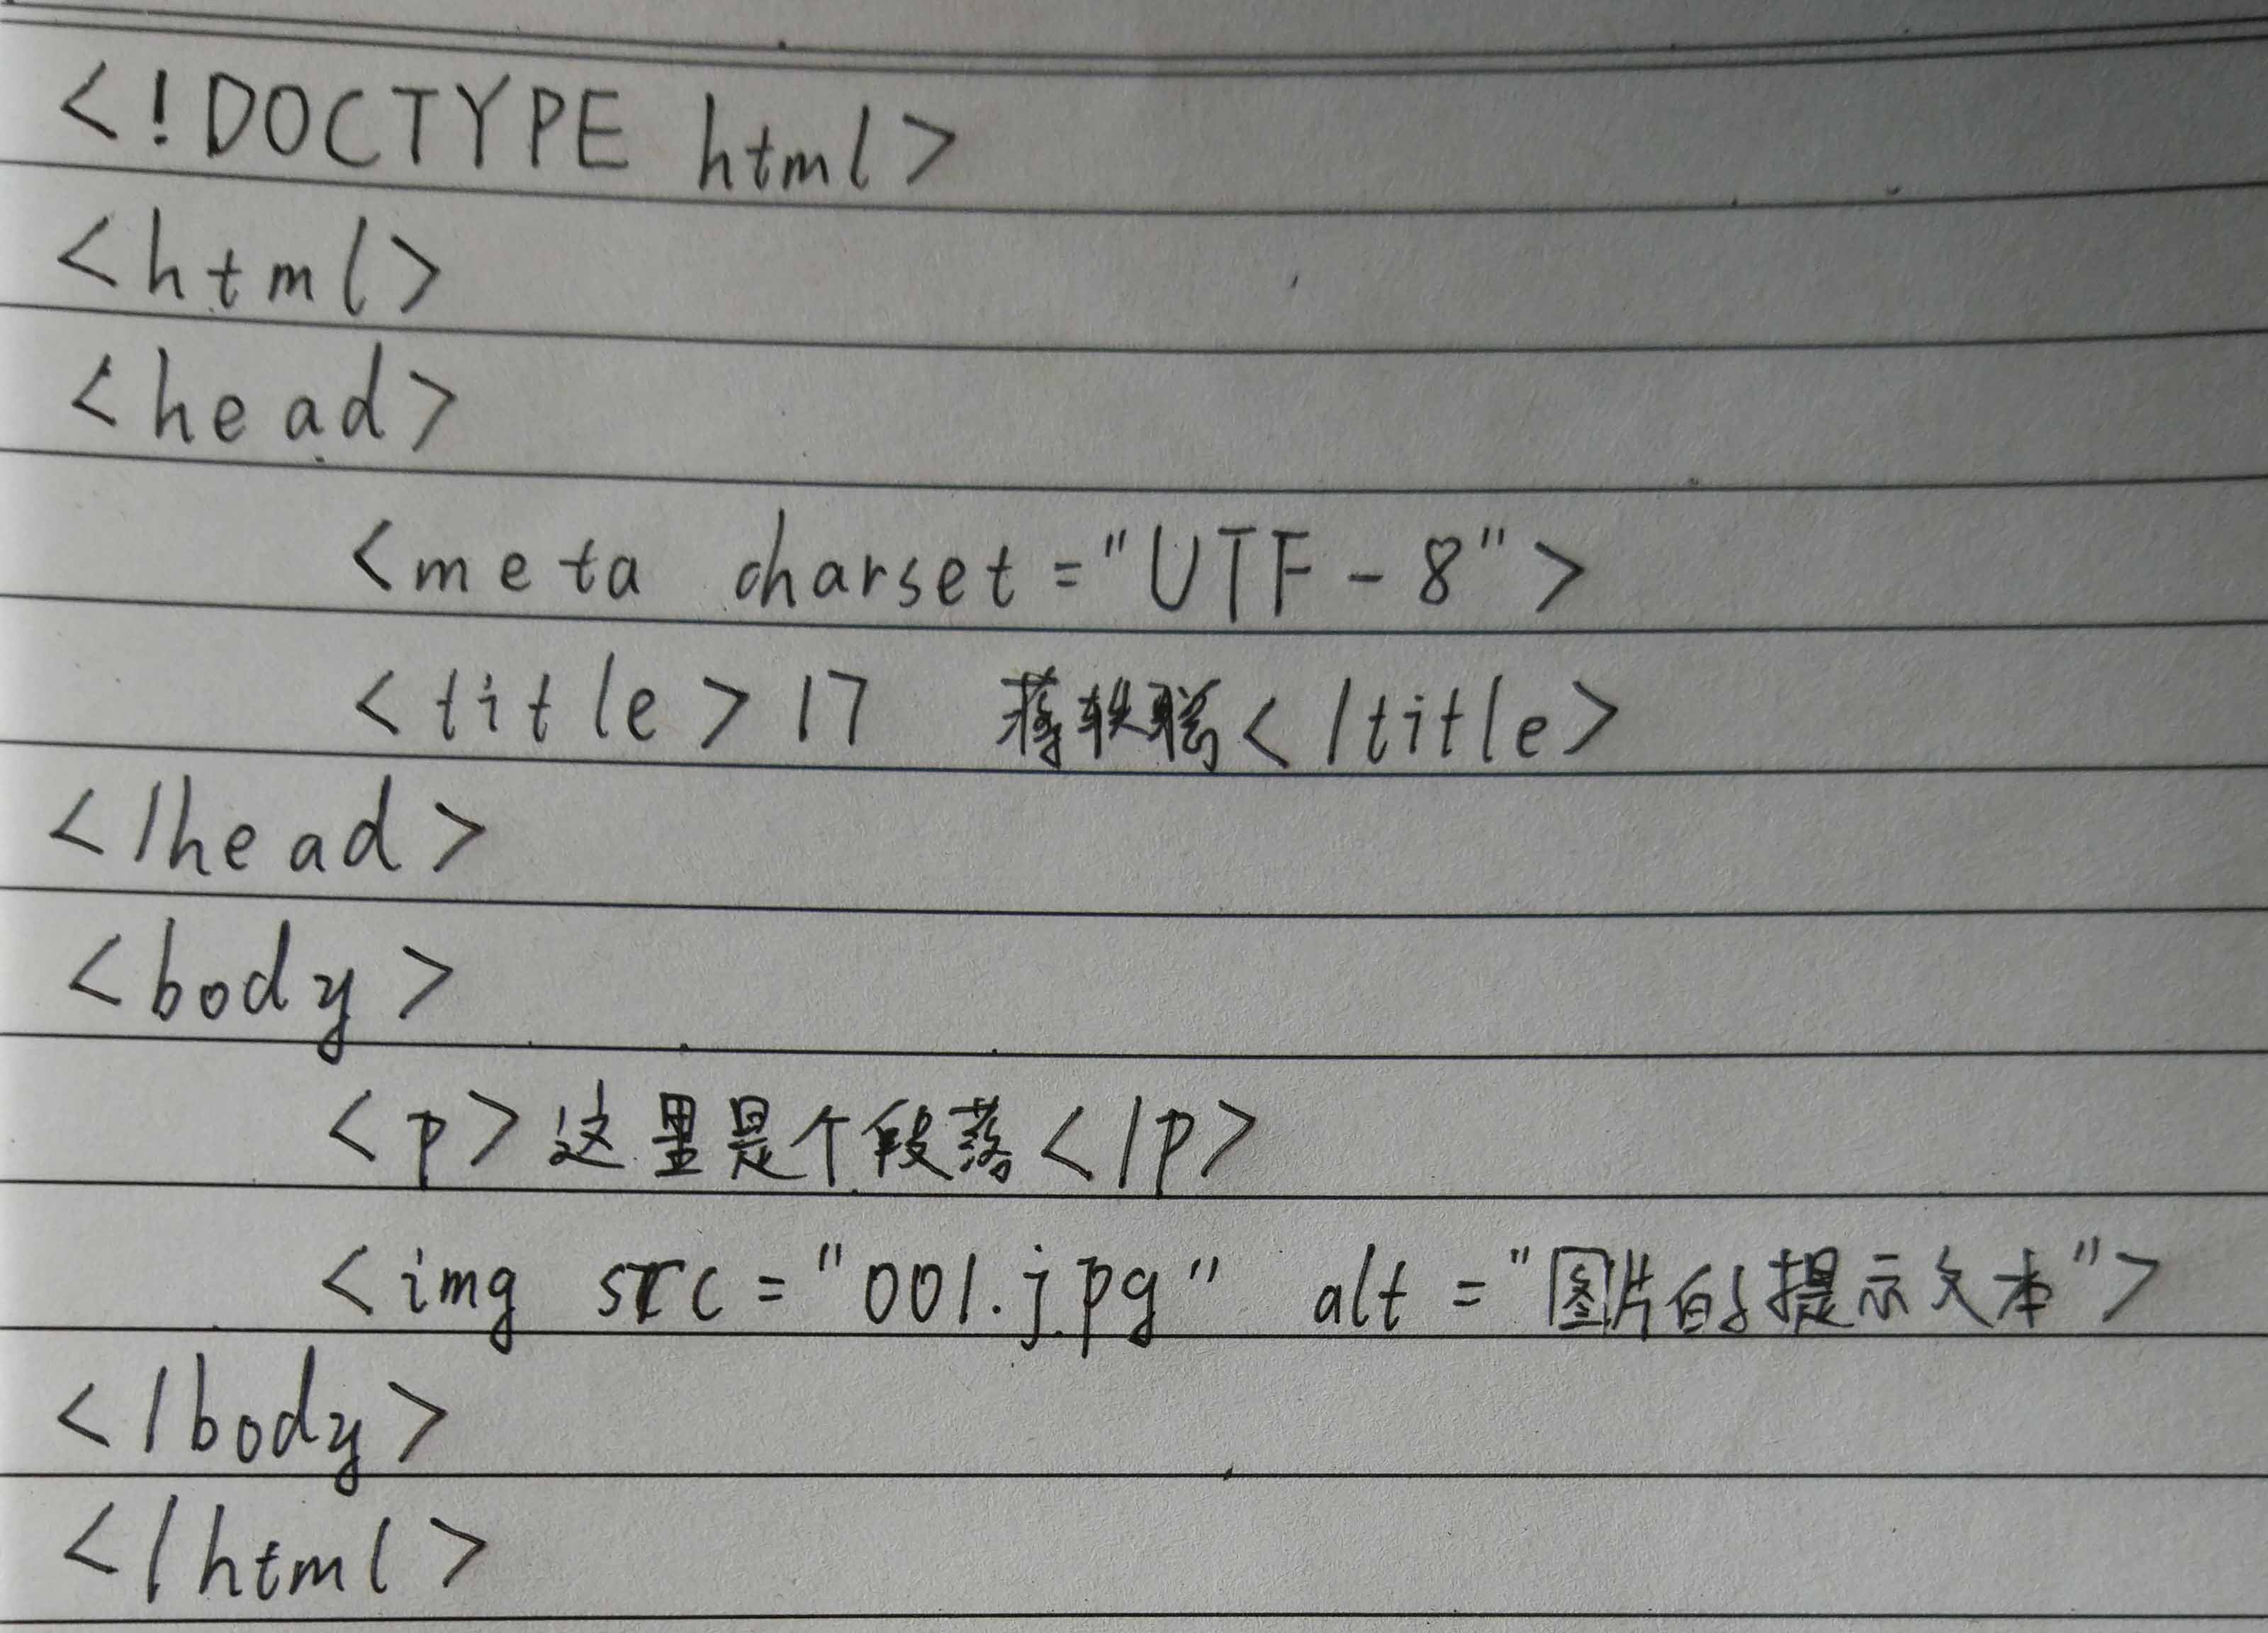 <!DOCTYPE html>
<html>
<head>
<meta charset="UTF-8">
<title>17 蒋轶聪</title>
</head>
<body>
<p>这里是个段落</p>
<img src="001.jpg" alt="图片的提示文本">
</body>
</html>